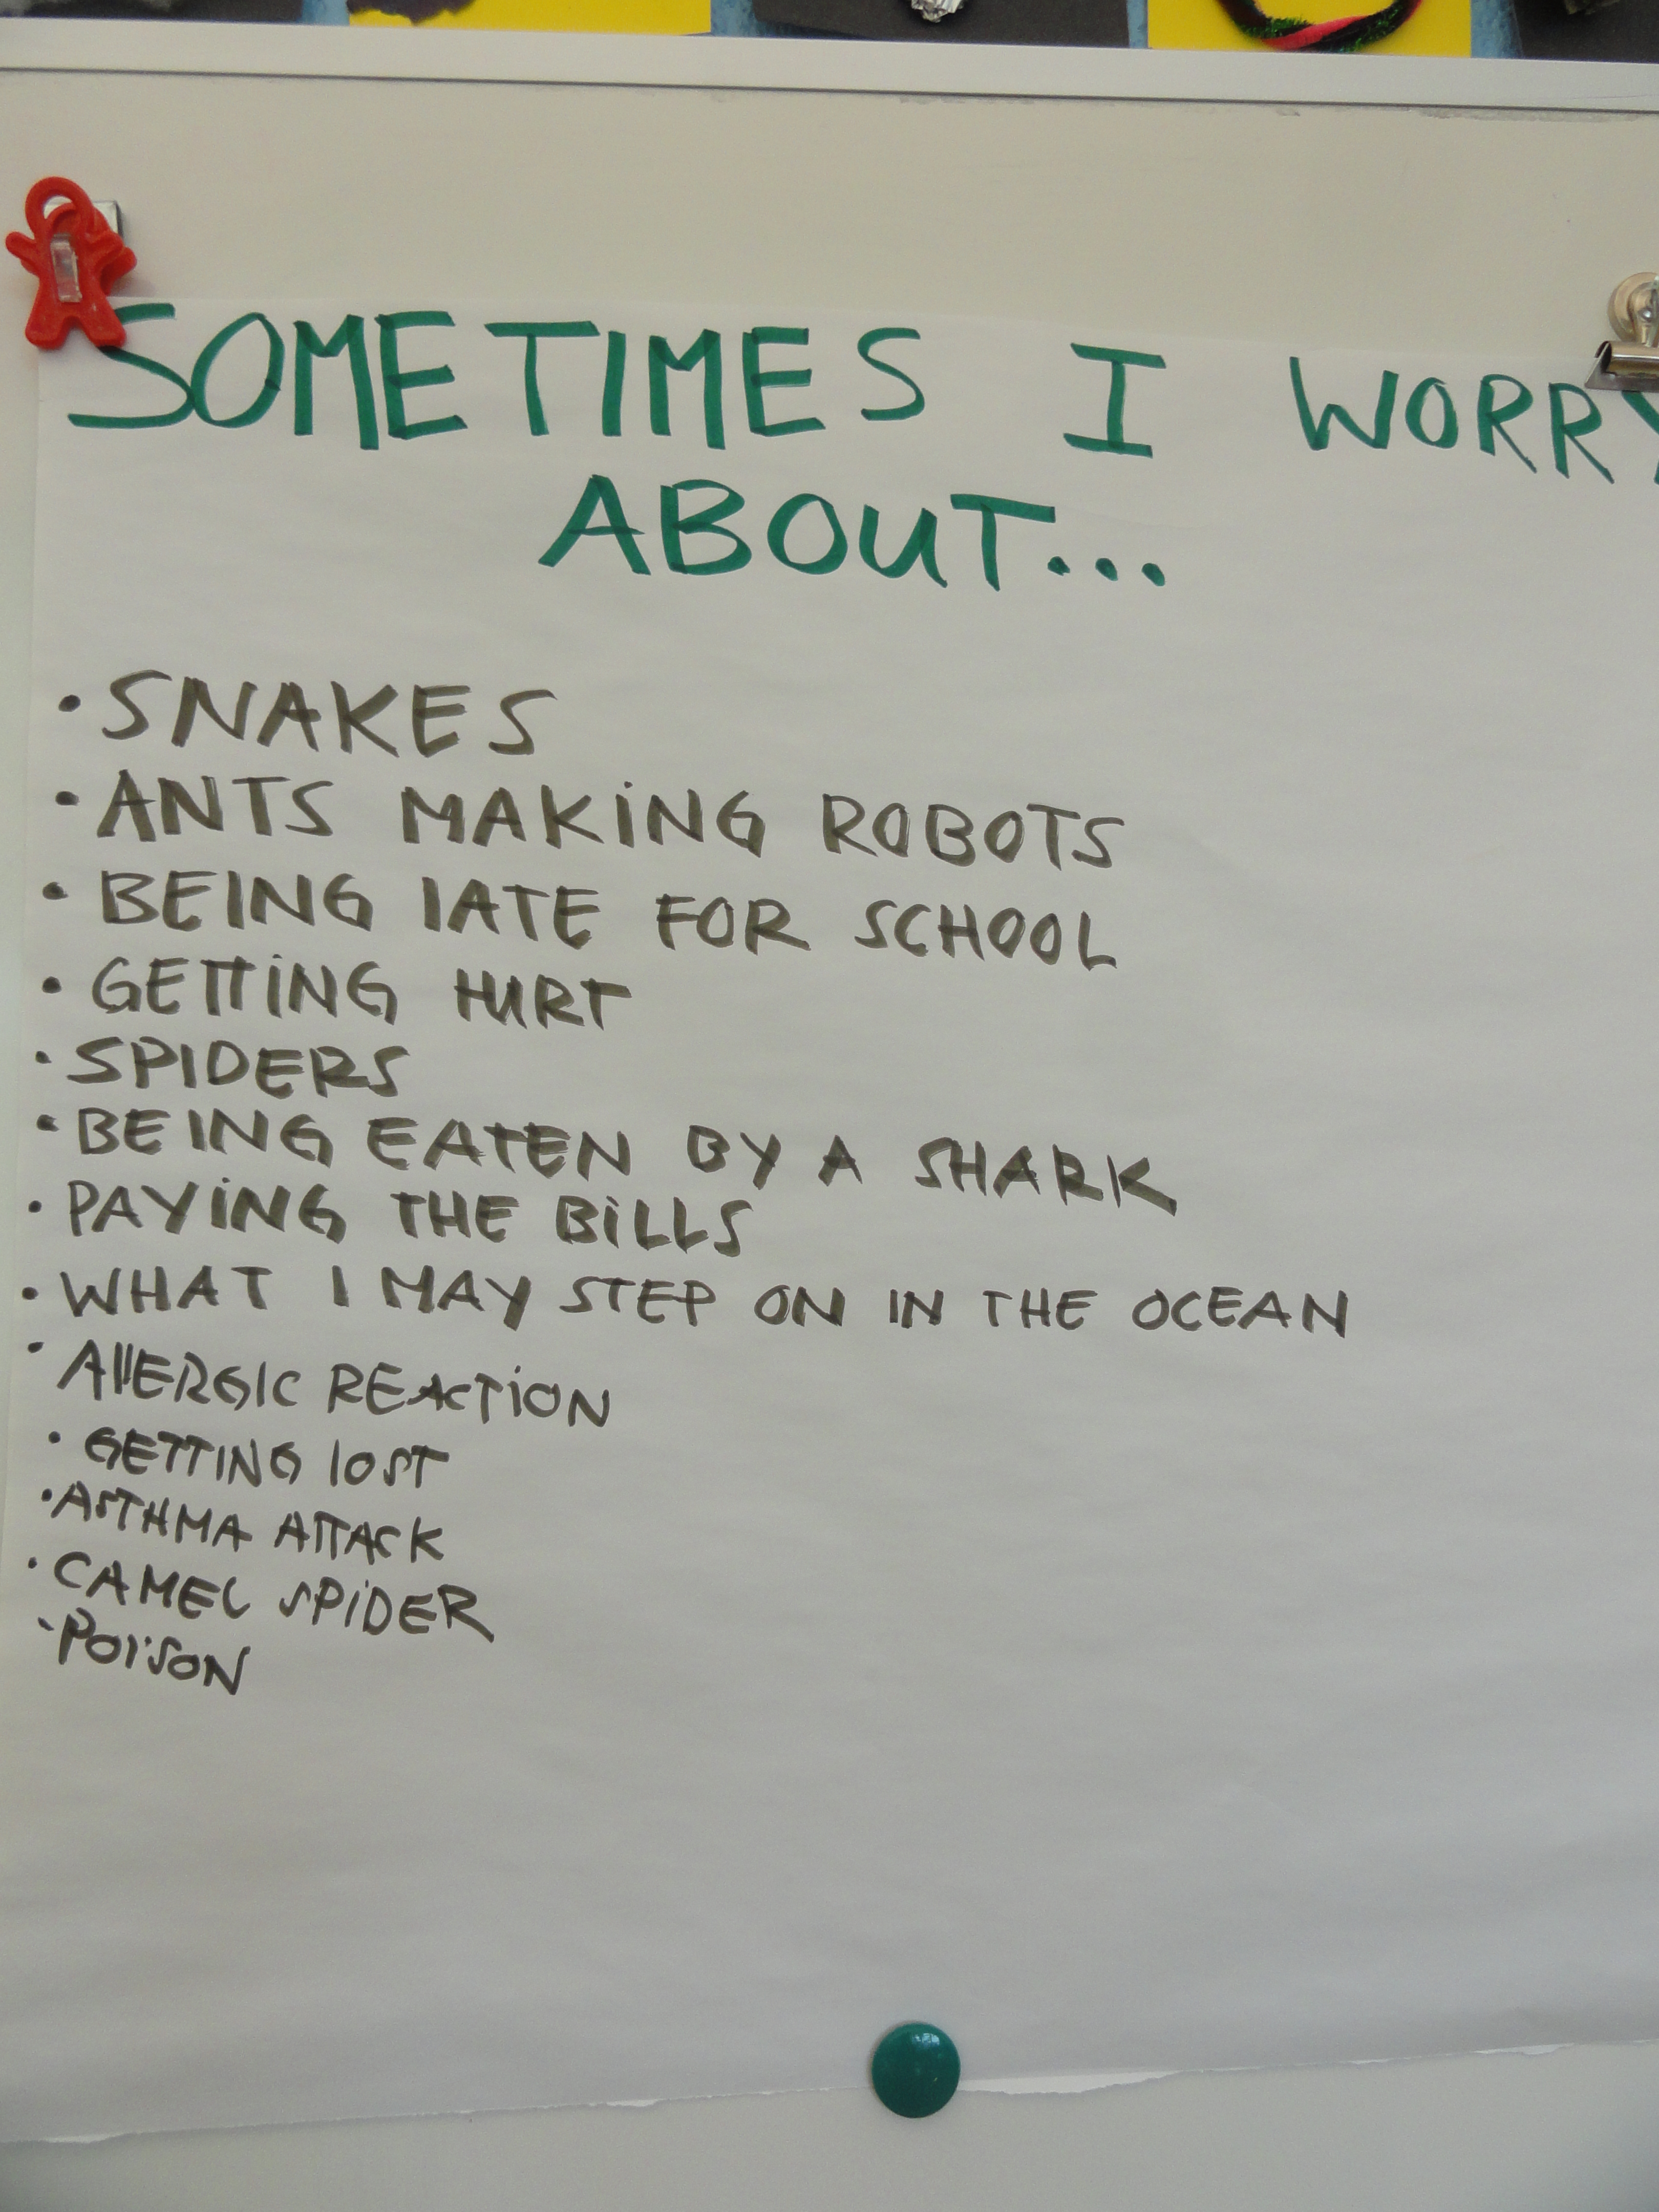 SOMETIMES I WORRY
ABOUT...
• SNAKES
• ANTS MAKING ROBOTS
• BEING LATE FOR SCHOOL
• GETTING HURT
• SPIDERS
• BEING EATEN BY A SHARK
• PAYING THE BILLS
• WHAT I MAY STEP ON IN THE OCEAN
• AllERGIC REACTION
• GETTING lOST
• ASTHMA ATTACK
• CAMEL SPIDER
• POISON